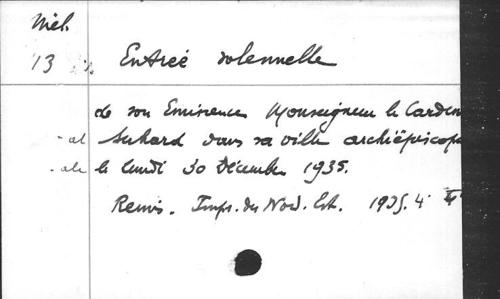 Mél.
13 Entrée solennelle
de son Eminence Monseigneur le Cardin
-al Suhard dans sa ville archiépiscop
-ale le lundi 30 Décembre 1935.
Reims. Imp. du Nord. Est. 1935. 4°